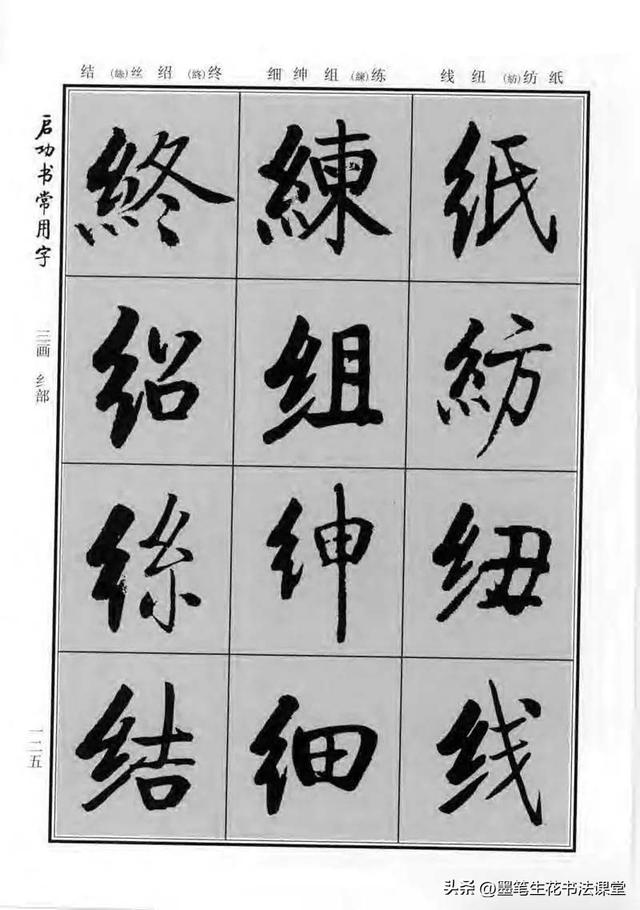 结 (絲)丝 绍 (終)终
细 绅 组 (練)练
线 纽 (紡)纺 纸
启功书常用字
三画 纟部
終 練 纸
绍 组 紡
絲 绅 纽
结 细 线
一二五
头条 @墨笔生花书法课堂